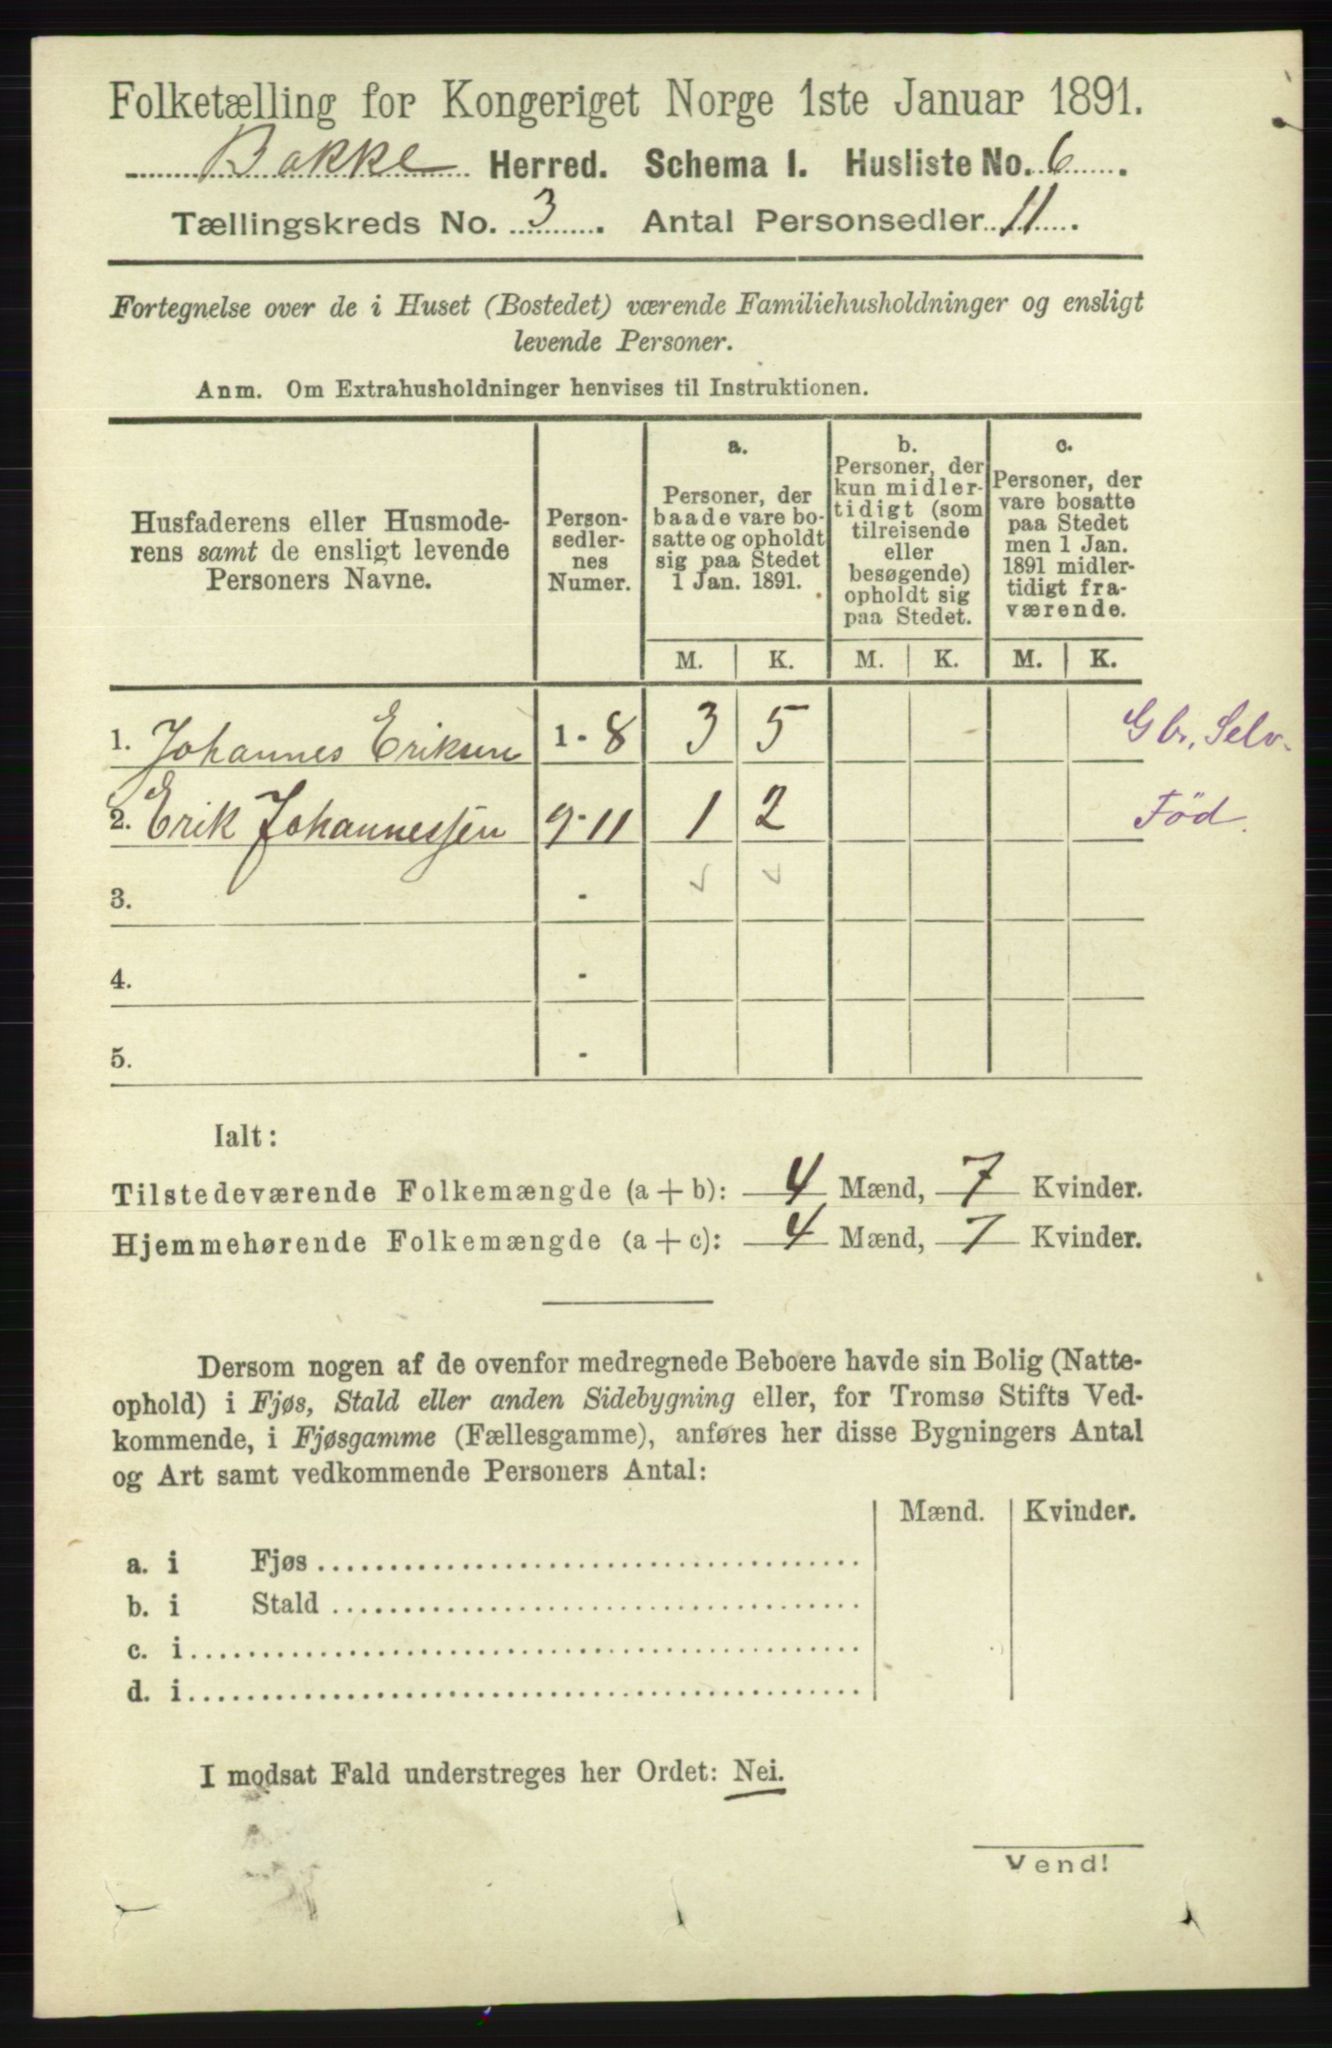 Folketælling for Kongeriget Norge 1ste Januar 1891.
Bakke Herred. Schema I. Husliste No. 6.
Tællingskreds No. 3. Antal Personsedler 11.
Fortegnelse over de i Huset (Bostedet) værende Familiehusholdninger og ensligt
levende Personer.
Anm. Om Extrahusholdninger henvises til Instruktionen.
Husfaderens eller Husmode-
rens samt de ensligt levende
Personers Navne.
Person-
sedler-
nes
Numer.
a.
Personer, der
baade vare bo-
satte og opholdt
sig paa Stedet
1 Jan. 1891.
b.
Personer, der
kun midler-
tidigt (som
tilreisende
eller
besøgende)
opholdt sig
paa Stedet.
c.
Personer, der
vare bosatte
paa Stedet
men 1 Jan.
1891 midler-
tidigt fra-
værende.
M. K. M. K. M. K.
1. Johannes Eriksen 1 - 8 3 5 Gbr, Selv.
2. Erik Johannessen 9-11 1 2 Föd.
3. -
4. -
5. -
Ialt:
Tilstedeværende Folkemængde (a + b): 4 Mænd, 7 Kvinder.
Hjemmehørende Folkemængde (a + c): 4 Mænd, 7 Kvinder.
Dersom nogen af de ovenfor medregnede Beboere havde sin Bolig (Natte-
ophold) i Fjøs, Stald eller anden Sidebygning eller, for Tromsø Stifts Ved-
kommende, i Fjøsgamme (Fællesgamme), anføres her disse Bygningers Antal
og Art samt vedkommende Personers Antal:
Mænd. Kvinder.
a. i Fjøs
b. i Stald
c. i
d. i
I modsat Fald understreges her Ordet: Nei.
Vend!